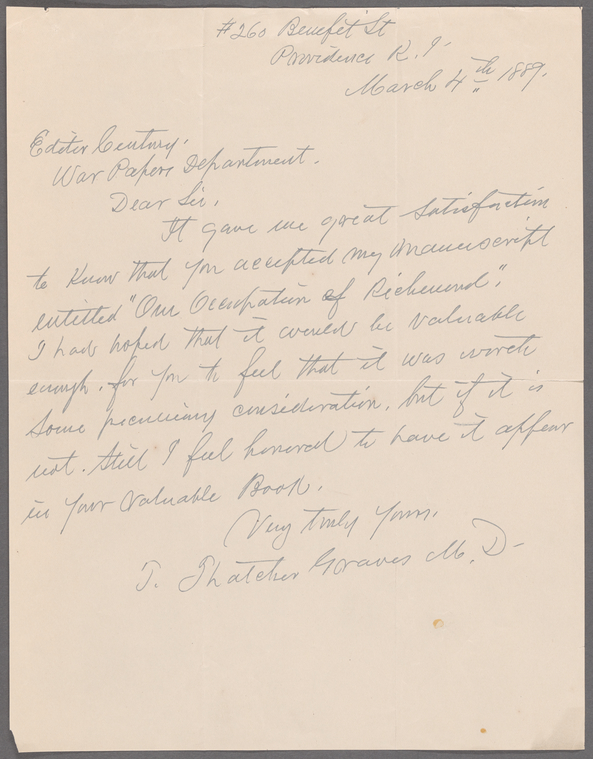 #260 Benefit St
Providence R. I.
March 4th 1889.
Editor Century.
War Papers Department.
Dear Sir,
It gave me great satisfaction
to Know that you accepted my manuscript
entitled "Our Occupation of Richmond",
I had hoped that it would be valuable
enough, for you to feel that it was worth
some pecuniary consideration, but if it is
not. Still I feel honored to have it appear
in Your Valuable Book.
Very truly Yours.
T. Thatcher Graves M. D-